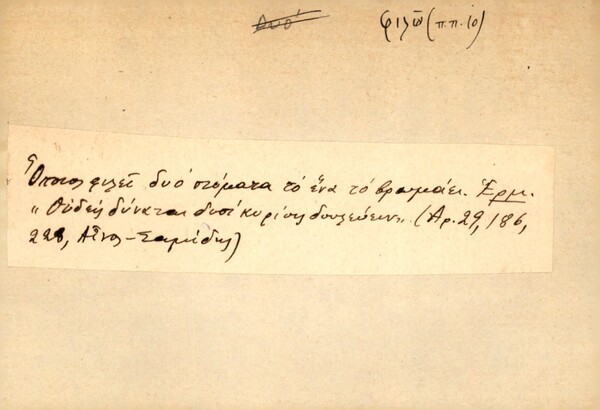 δυό
φιλῶ (π.π. 10)
Ὅποιος φιλεῖ δυό στόματα τό ἕνα τό βρωμάει. Ἑρμ.
"Οὐδείς δύναται δυσί κυρίοις δουλεύειν". (Αρ. 29, 186,
228, Αἶνος - Σαμίδης)